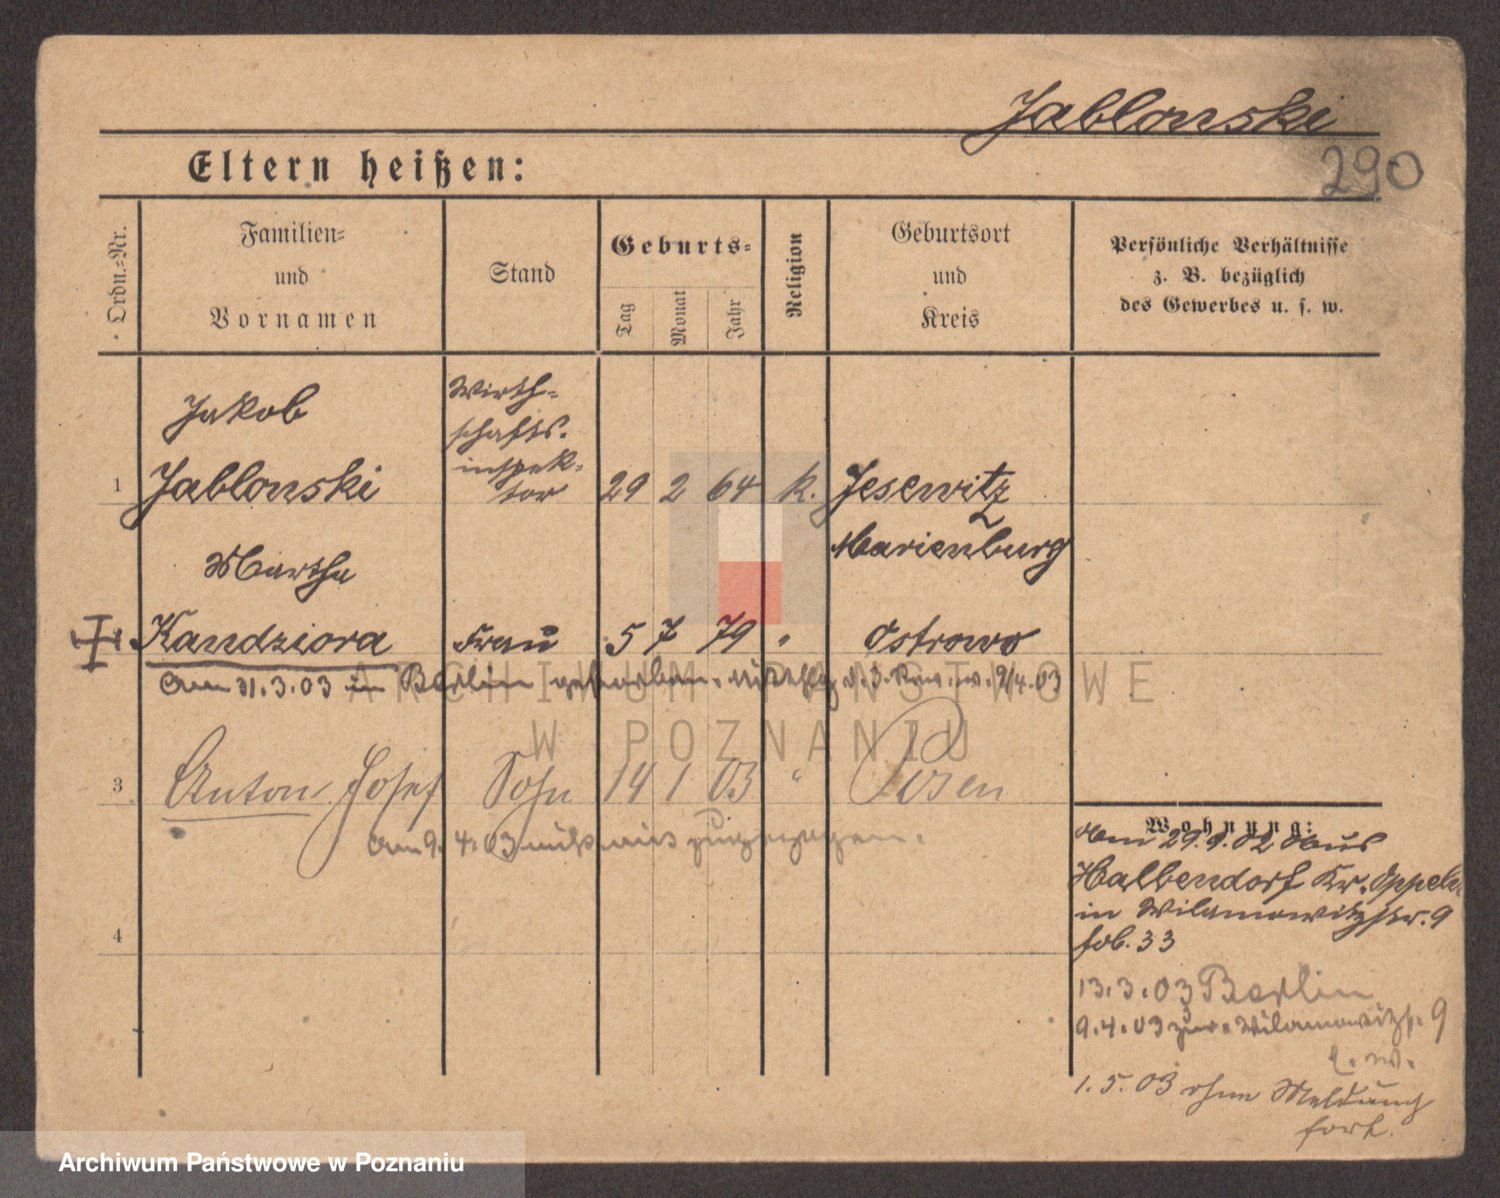 Jablonski
290
Eltern heißen:
Ordn.-Nr.
Familien-
und
Vornamen
Stand
Geburts-
Tag
Monat
Jahr
Religion
Geburtsort
und
Kreis
Persönliche Verhältnisse
z. B. bezüglich
des Gewerbes u. s. w.
Jakob
Wirth-
schafts-
inspek-
tor
1 Jablonski 29 2 64 k. Jesewitz
Marienburg
Martha
Kandziora Frau 5 7 79 " Ostrowo
Am 31.3.03 in Berlin gestorben. 9/4.03
3 Anton Josef Sohn 14 1 03 " Posen
Am 9.4.03 zugezogen.
4
Wohnung:
Am 29.9.02 aus
Halbendorf Kr. Oppeln
in Wilamowitzstr. 9
33
13.3.03 Berlin
9.4.03 zur. Wilamowitzstr. 9
1.5.03 ohne Meldung
fort.
ARCHIWUM PAŃSTWOWE
W POZNANIU
Archiwum Państwowe w Poznaniu